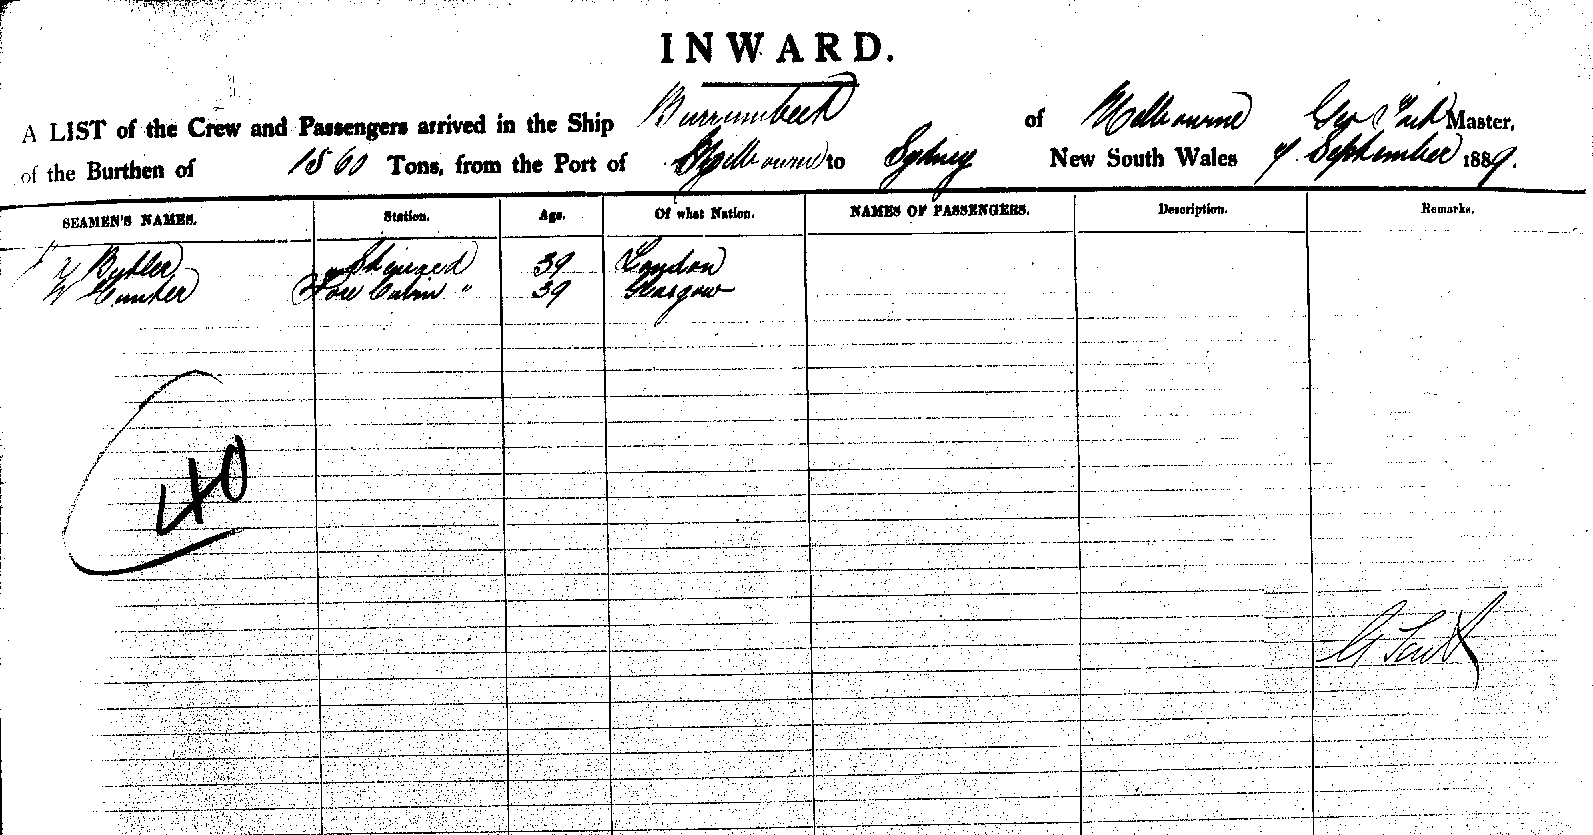 INWARD.
A LIST of the Crew and Passengers arrived in the Ship Burrumbeet of Melbourne Geo Tait Master,
of the Burthen of 1560 Tons, from the Port of Melbourne to Sydney New South Wales 7 September 1889.
SEAMEN'S NAMES. Station. Age. Of what Nation. NAMES OF PASSENGERS. Description. Remarks.
Butler Steward 39 London
W Fore Cabin " 39 Glasgow
40